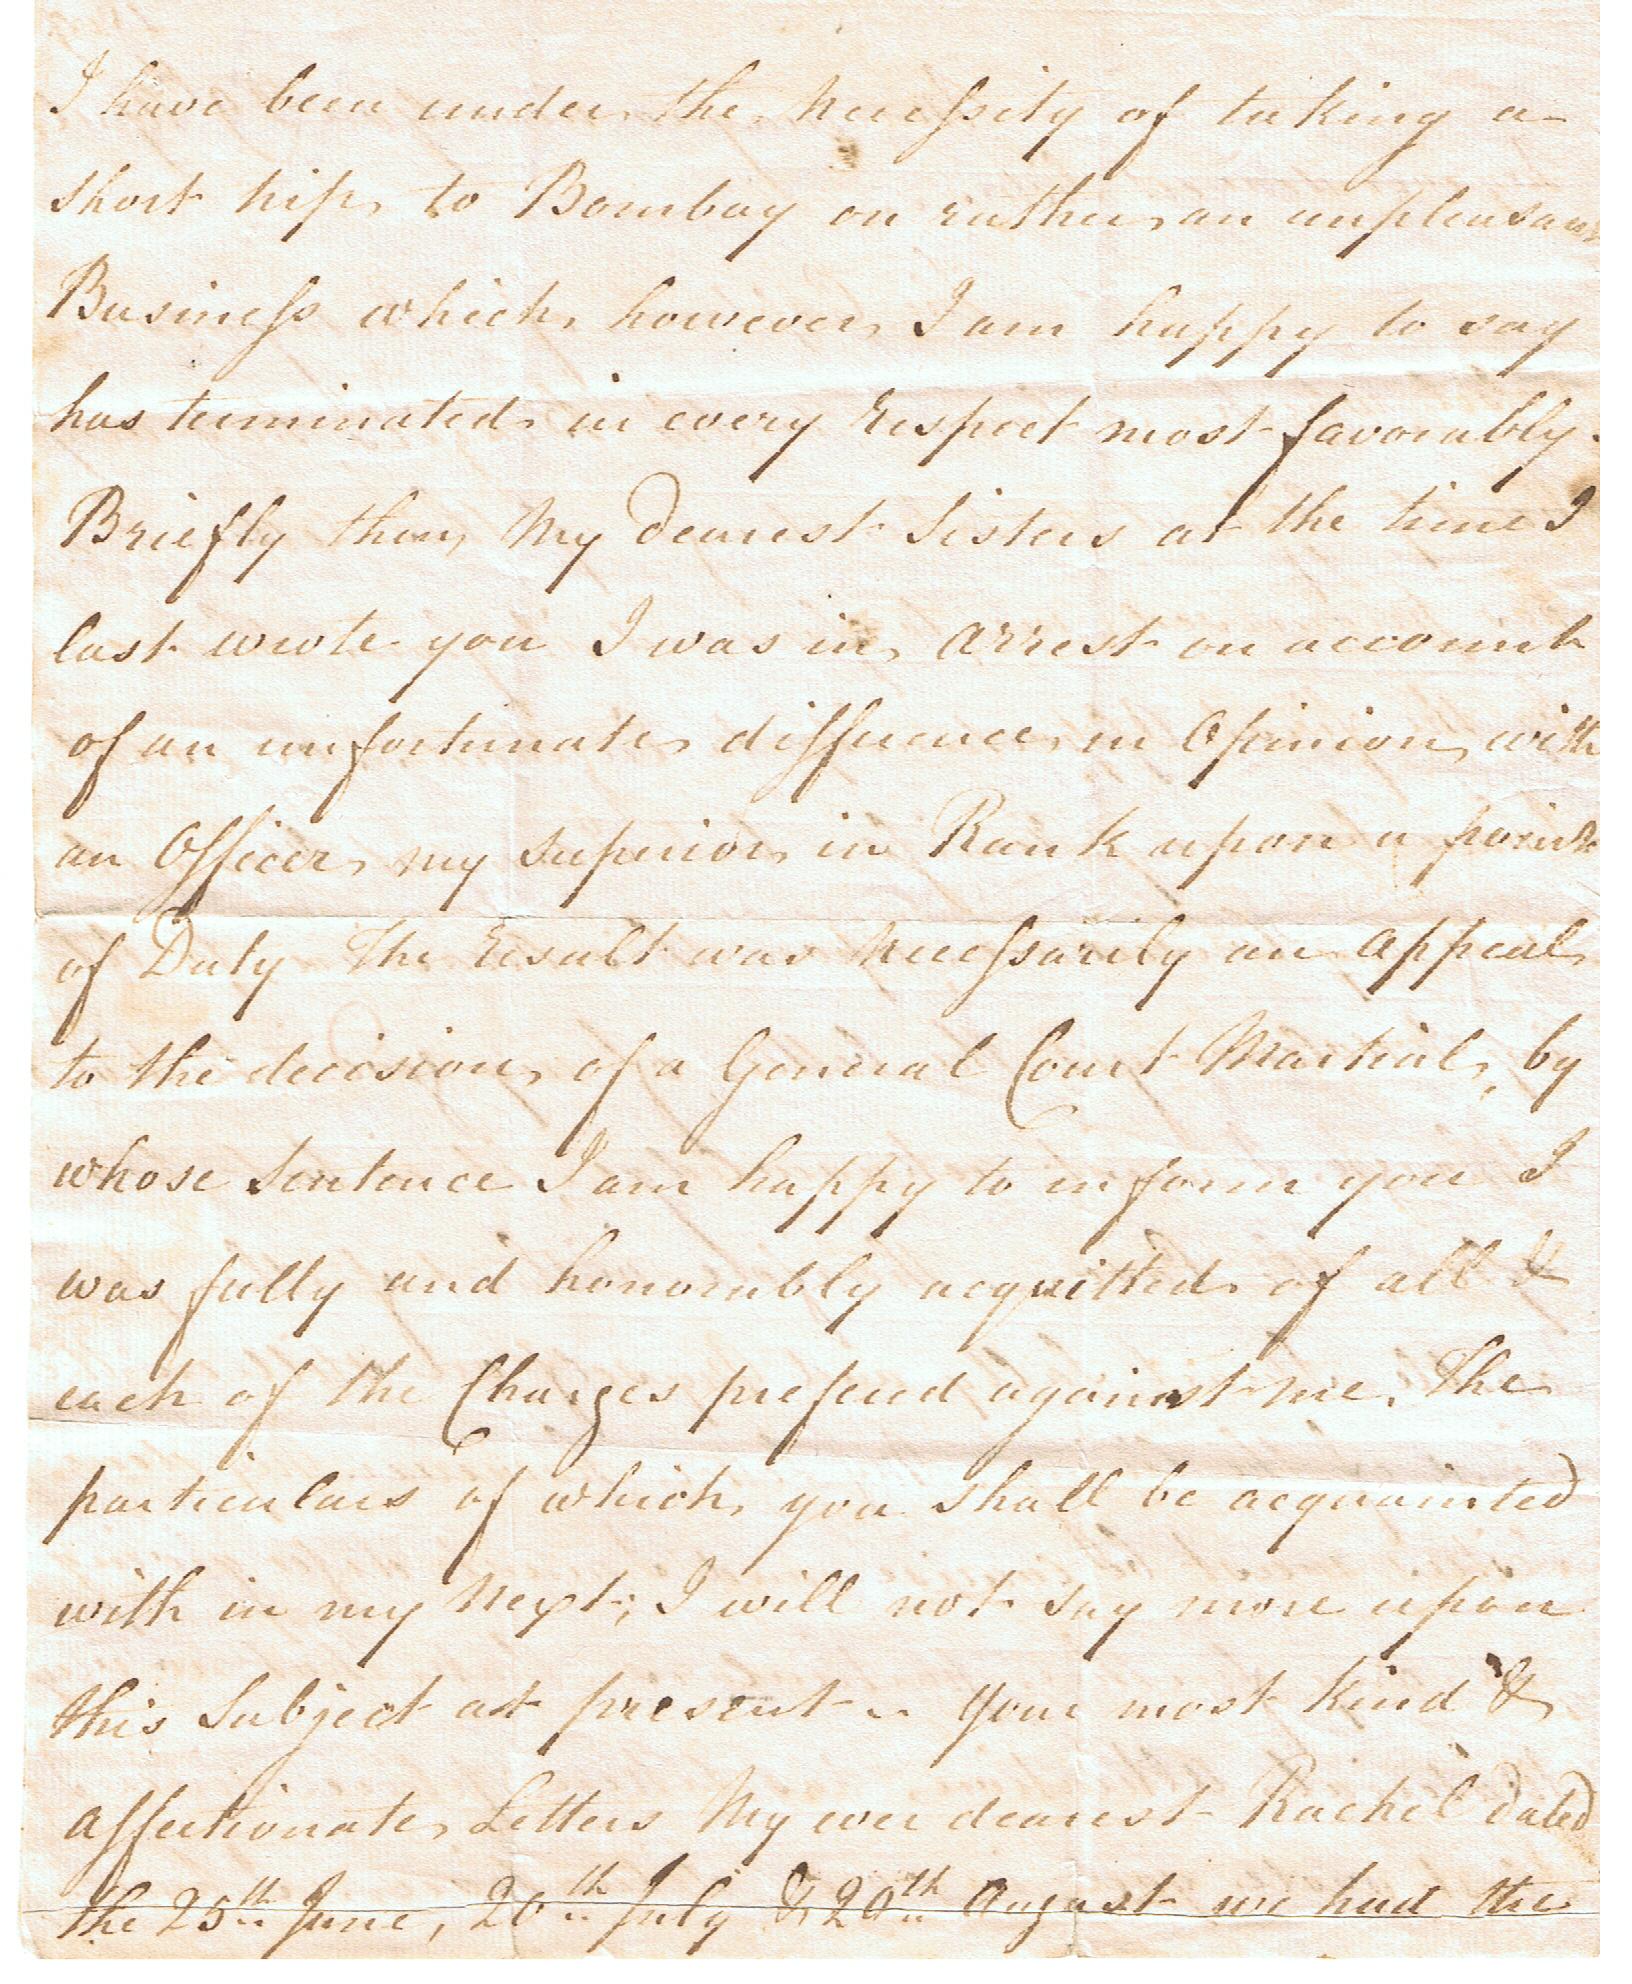 I have been under the Necessity of taking a
short trip to Bombay on rather an unpleasant
Business which however I am happy to say
has terminated in every Respect most favorably.
Briefly then My Dearest Sisters at the time I
last wrote you I was in Arrest on account
of an unfortunate difference in Opinion with
an Officer my superior in Rank upon a point
of Duty The Result was Necessarily an Appeal
to the decision of a General Court Martial, by
whose Sentence I am happy to inform you I
was fully and honorably acquitted of all &
each of the Charges prefered against me. The
particulars of which you shall be acquainted
with in my Next; I will not say more upon
this Subject at present .. Your most kind &
Affectionate Letters My ever dearest Rachel dated
the 25th June, 20th July & 20th August we had the